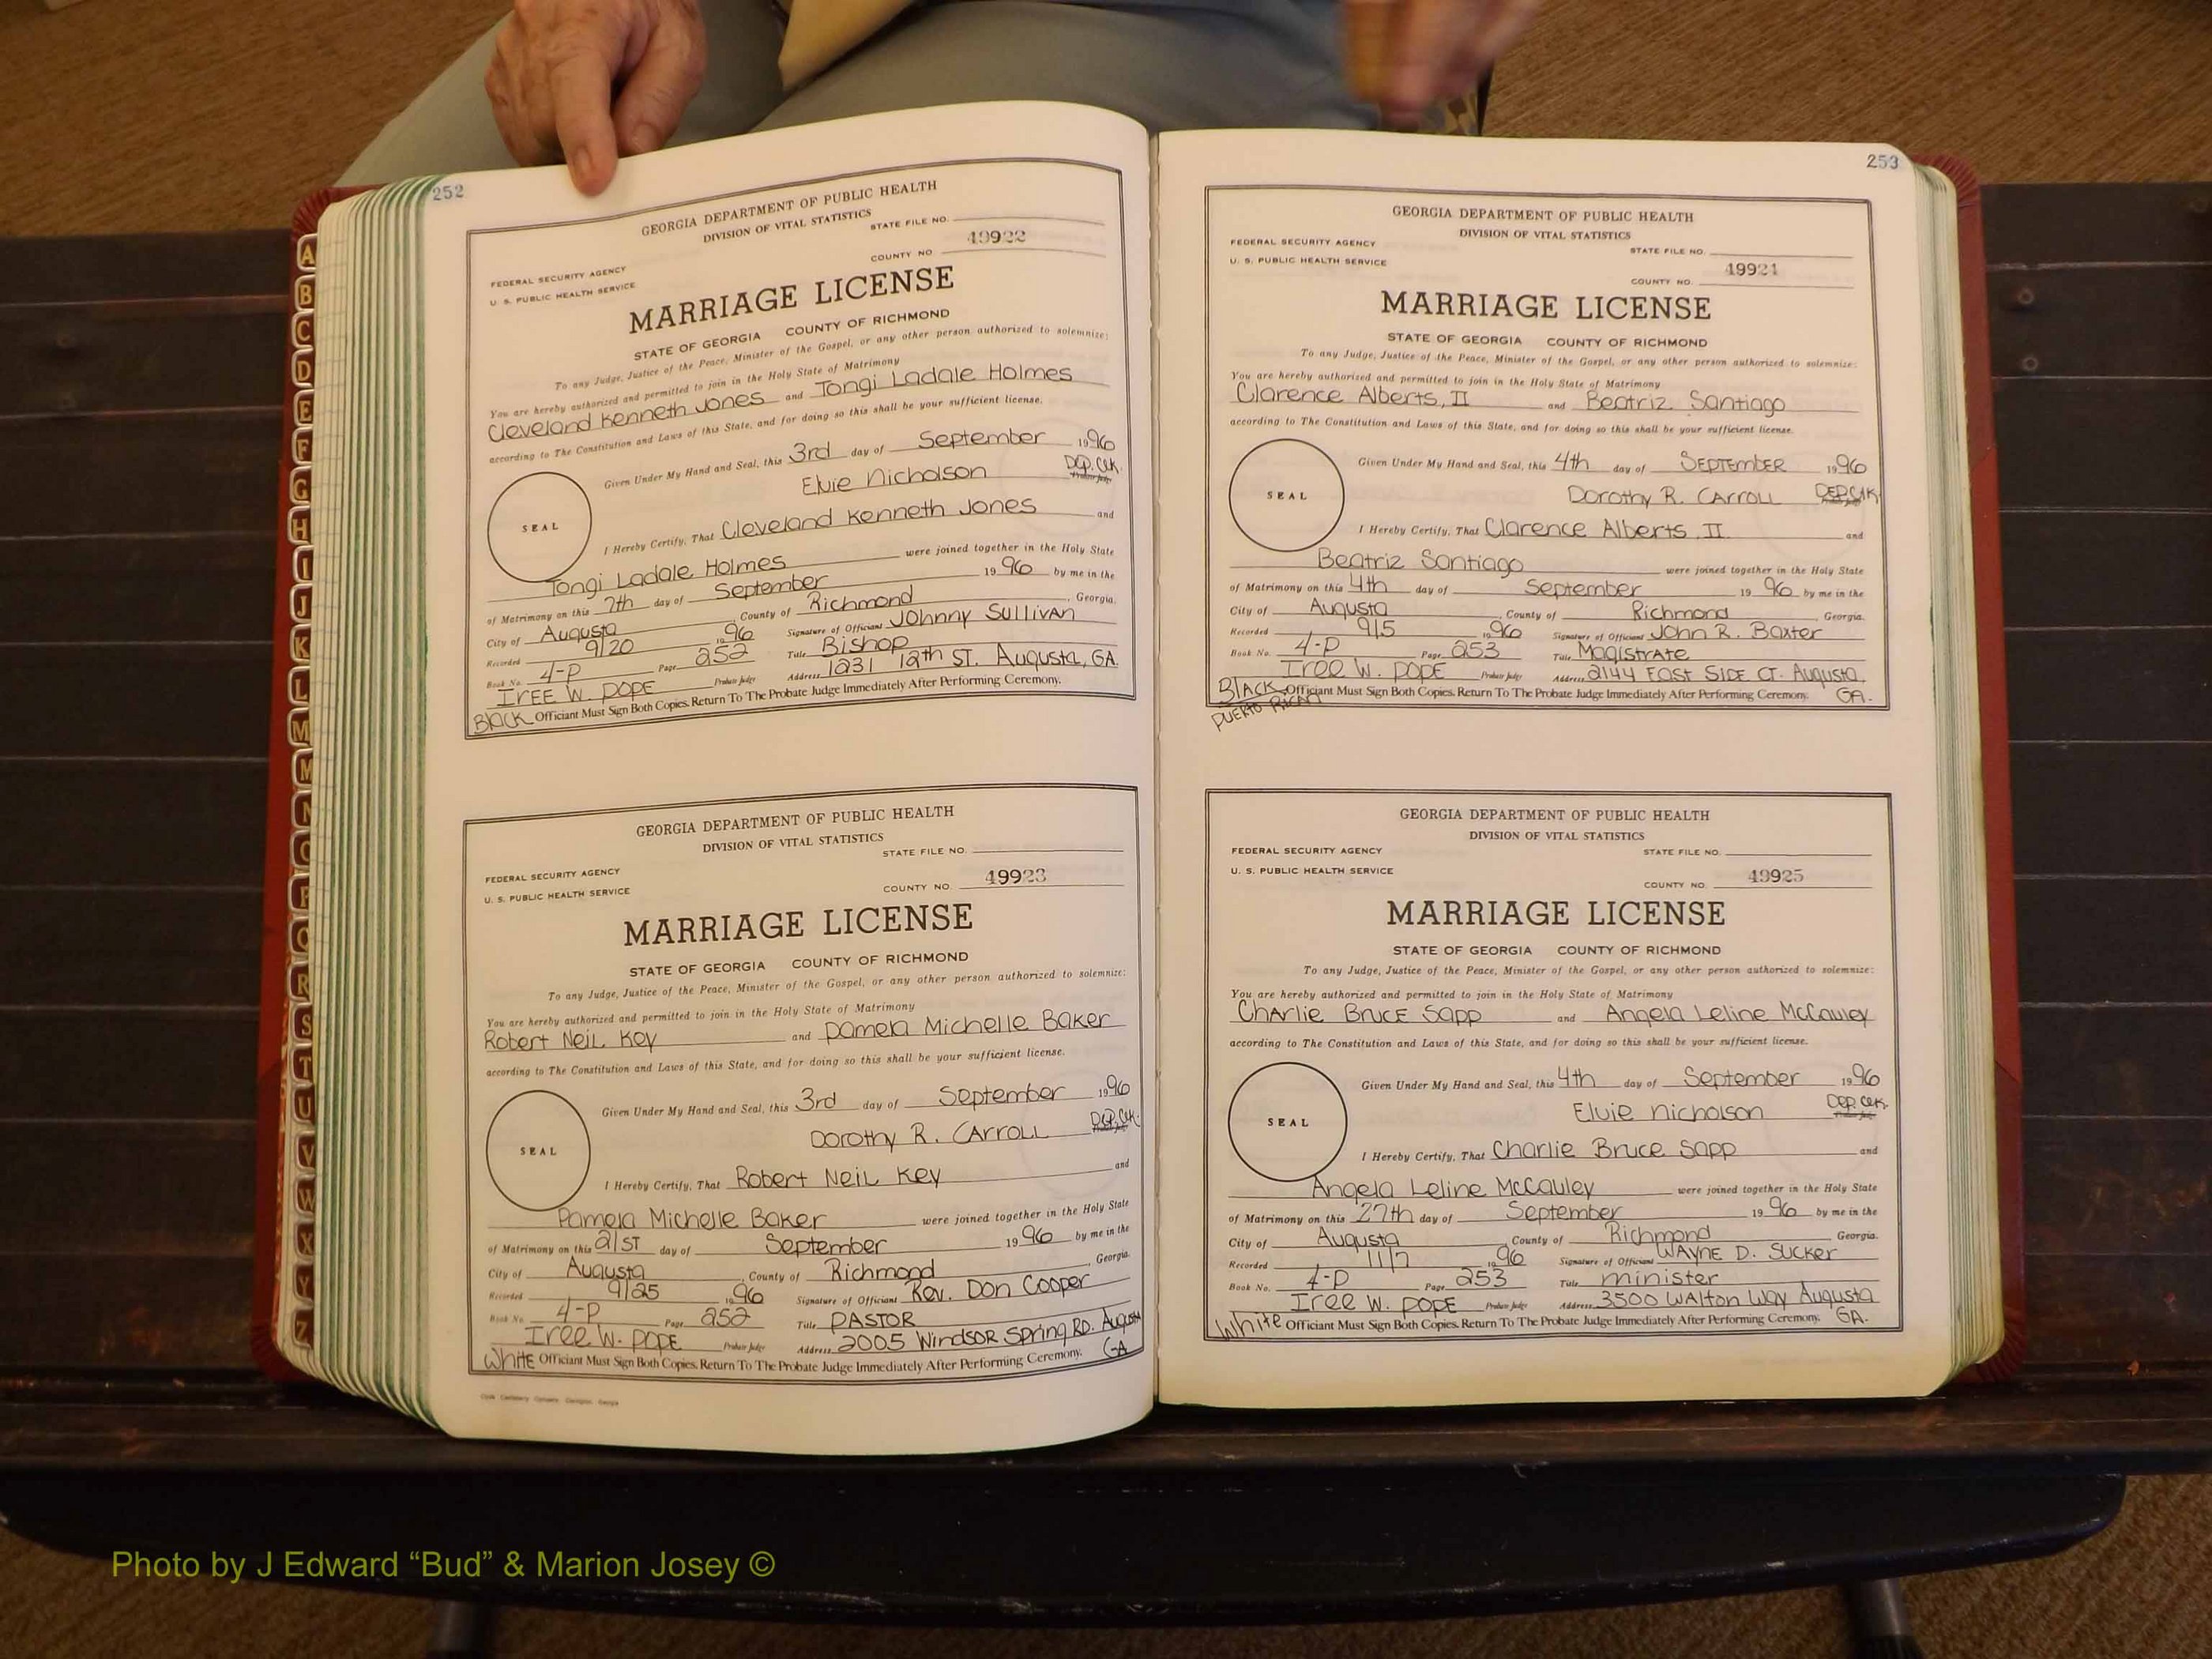 252
GEORGIA DEPARTMENT OF PUBLIC HEALTH
DIVISION OF VITAL STATISTICS
STATE FILE NO.
49922
COUNTY NO
FEDERAL SECURITY AGENCY
U. S. PUBLIC HEALTH SERVICE
MARRIAGE LICENSE
STATE OF GEORGIA COUNTY OF RICHMOND
To any Judge, Justice of the Peace, Minister of the Gospel, or any other person authorized to solemnize:
You are hereby authorized and permitted to join in the Holy State of Matrimony
Cleveland Kenneth Jones and Tongi Ladale Holmes
according to The Constitution and Laws of this State, and for doing so this shall be your sufficient license.
Given Under My Hand and Seal, this 3rd day of September 1996
Elvie Nicholson DEP. CLK.
SEAL
I Hereby Certify, That Cleveland Kenneth Jones and
Tongi Ladale Holmes were joined together in the Holy State
of Matrimony on this 7th day of September 19 96 by me in the
City of Augusta, County of Richmond, Georgia.
Recorded 9/20 1996 Signature of Officiant Johnny Sullivan
Book No. 4-P Page 252 Title Bishop
IREE W. POPE Probate Judge Address 1231 12th ST. Augusta, GA.
BLACK Officiant Must Sign Both Copies. Return To The Probate Judge Immediately After Performing Ceremony.
GEORGIA DEPARTMENT OF PUBLIC HEALTH
DIVISION OF VITAL STATISTICS
STATE FILE NO.
FEDERAL SECURITY AGENCY
U. S. PUBLIC HEALTH SERVICE
COUNTY NO. 49923
MARRIAGE LICENSE
STATE OF GEORGIA COUNTY OF RICHMOND
To any Judge, Justice of the Peace, Minister of the Gospel, or any other person authorized to solemnize:
You are hereby authorized and permitted to join in the Holy State of Matrimony
Robert Neil Key and Pamela Michelle Baker
according to The Constitution and Laws of this State, and for doing so this shall be your sufficient license.
Given Under My Hand and Seal, this 3rd day of September 1996
Dorothy R. Carroll DEP. CLK.
SEAL
I Hereby Certify, That Robert Neil Key and
Pamela Michelle Baker were joined together in the Holy State
of Matrimony on this 21ST day of September 19 96 by me in the
City of Augusta, County of Richmond, Georgia.
Recorded 9/25 1996 Signature of Officiant Rev. Don Cooper
Book No 4-P Page 252 Title PASTOR
Iree W. POPE Probate Judge Address 2005 Windsor Spring RD. Augusta
White Officiant Must Sign Both Copies. Return To The Probate Judge Immediately After Performing Ceremony. GA
253
GEORGIA DEPARTMENT OF PUBLIC HEALTH
DIVISION OF VITAL STATISTICS
FEDERAL SECURITY AGENCY
STATE FILE NO.
U. S. PUBLIC HEALTH SERVICE
COUNTY NO. 49924
MARRIAGE LICENSE
STATE OF GEORGIA COUNTY OF RICHMOND
To any Judge, Justice of the Peace, Minister of the Gospel, or any other person authorized to solemnize:
You are hereby authorized and permitted to join in the Holy State of Matrimony
Clarence Alberts, II and Beatriz Santiago
according to The Constitution and Laws of this State, and for doing so this shall be your sufficient license.
Given Under My Hand and Seal, this 4th day of SEPTEMBER 1996
Dorothy R. Carroll DEP. CLK.
SEAL
I Hereby Certify, That Clarence Alberts, II and
Beatriz Santiago were joined together in the Holy State
of Matrimony on this 4th day of September 19 96 by me in the
City of Augusta, County of Richmond Georgia.
Recorded 9/5 1996 Signature of Officiant John R. Baxter
Book No. 4-P Page 253 Title Magistrate
Iree W. POPE Probate Judge Address 2144 East Side CT. Augusta,
BLACK Officiant Must Sign Both Copies. Return To The Probate Judge Immediately After Performing Ceremony. GA.
PUERTO RICAN
GEORGIA DEPARTMENT OF PUBLIC HEALTH
DIVISION OF VITAL STATISTICS
FEDERAL SECURITY AGENCY
STATE FILE NO.
U. S. PUBLIC HEALTH SERVICE
COUNTY NO 49925
MARRIAGE LICENSE
STATE OF GEORGIA COUNTY OF RICHMOND
To any Judge, Justice of the Peace, Minister of the Gospel, or any other person authorized to solemnize:
You are hereby authorized and permitted to join in the Holy State of Matrimony
Charlie Bruce Sapp and Angela Leline McCauley
according to The Constitution and Laws of this State, and for doing so this shall be your sufficient license.
Given Under My Hand and Seal, this 4th day of September 1996
Elvie Nicholson DEP. CLK.
SEAL
I Hereby Certify, That Charlie Bruce Sapp and
Angela Leline McCauley were joined together in the Holy State
of Matrimony on this 27th day of September 19 96 by me in the
City of Augusta, County of Richmond Georgia.
Recorded 11/7 1996 Signature of Officiant WAYNE D. SUCKER
Book No. 4-P Page 253 Title minister
Iree W. POPE Probate Judge Address 3500 Walton Way Augusta
White Officiant Must Sign Both Copies. Return To The Probate Judge Immediately After Performing Ceremony. GA.
A
B
C
D
E
F
G
H
I
J
K
L
M
M
N
O
P
Q
R
S
T
U
V
W
X
Y
Z
Photo by J Edward “Bud” & Marion Josey ©